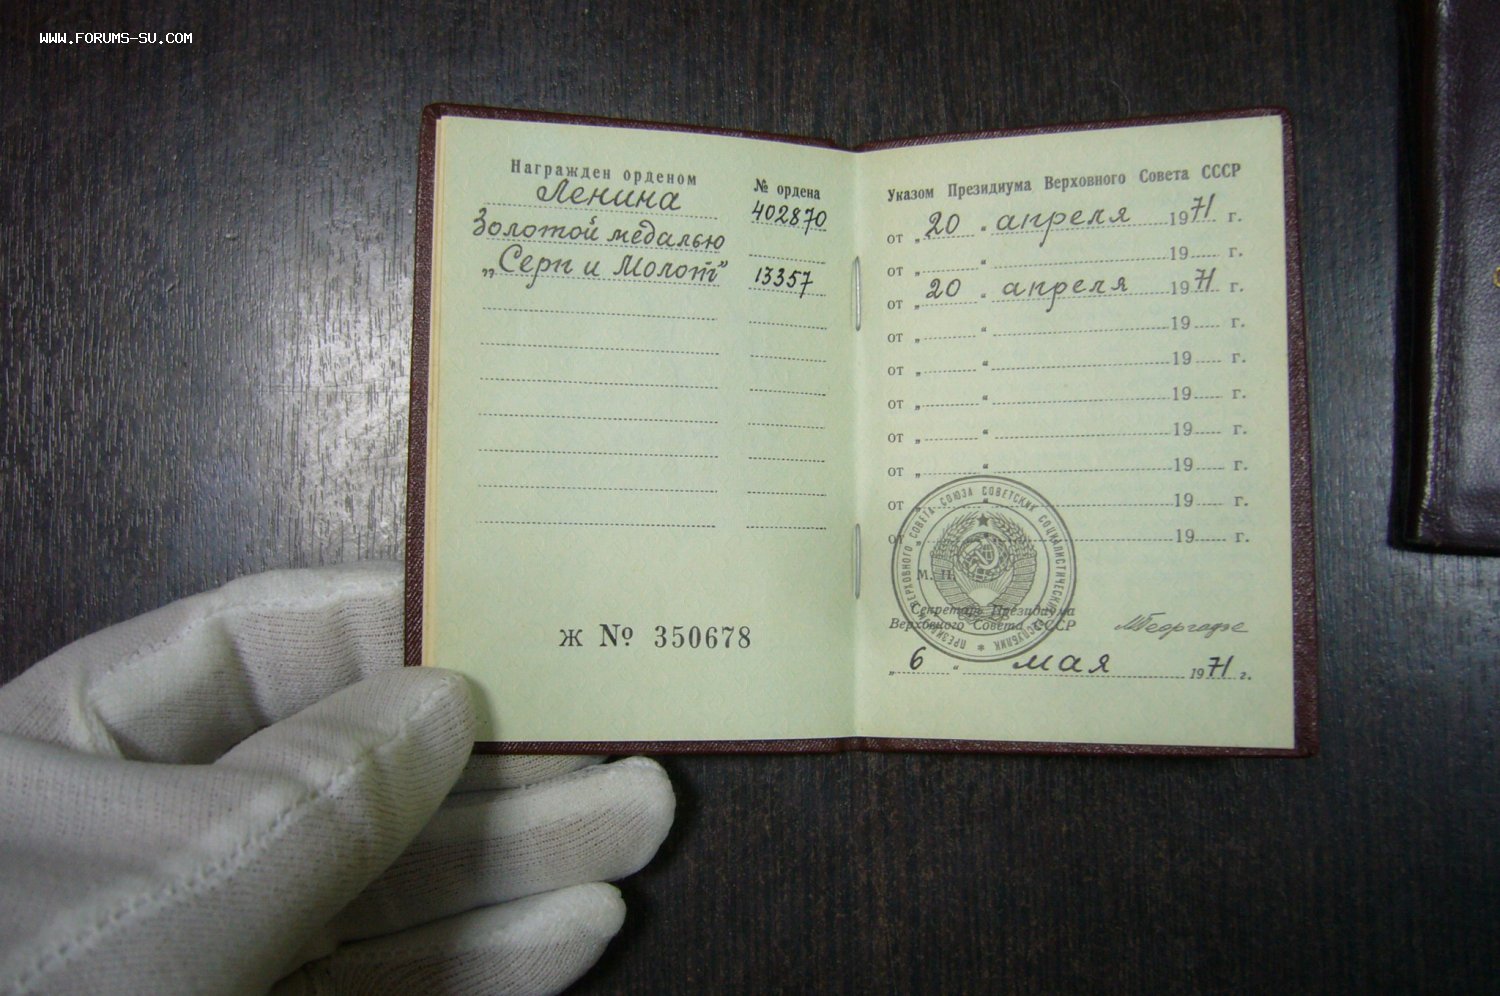 WWW.FORUMS-SU.COM
Награжден орденом
№ ордена
Ленина
402870
Золотой медалью
„Серп и Молот”
13357
Ж № 350678
Указом Президиума Верховного Совета СССР
от „ 20 “ апреля 1971 г.
от „ “ 19 г.
от „ 20 “ апреля 1971 г.
от „ “ 19 г.
от „ “ 19 г.
от „ “ 19 г.
от „ “ 19 г.
от „ “ 19 г.
от „ “ 19 г.
от „ “ 19 г.
ПРЕЗИДИУМ ВЕРХОВНОГО СОВЕТА СОЮЗА СОВЕТСКИХ СОЦИАЛИСТИЧЕСКИХ РЕСПУБЛИК
М. П.
Секретарь Президиума
Верховного Совета СССР
МГеоргадзе
„ 6 “ мая 1971 г.